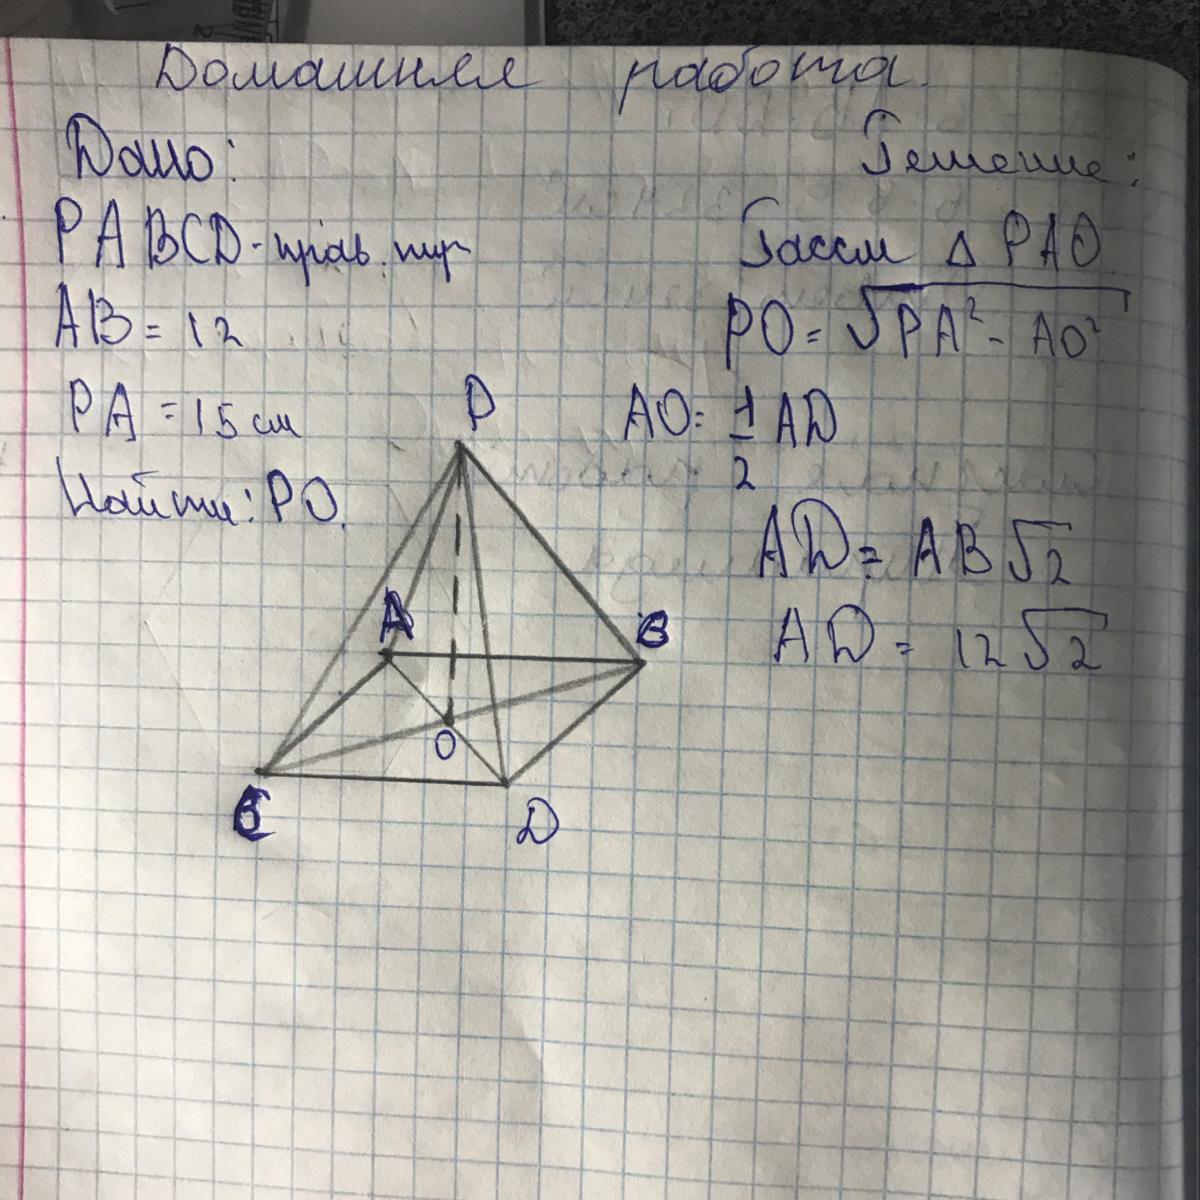 Домашняя работа.
Дано:
PABCD - прав. пир
AB = 12
PA = 15 см
Найти: PO.
Решение:
Рассм Δ PAO.
PO = √PA² - AO²
AO = 1/2 AD
AD = AB√2
AD = 12√2
P
A
B
O
C
D